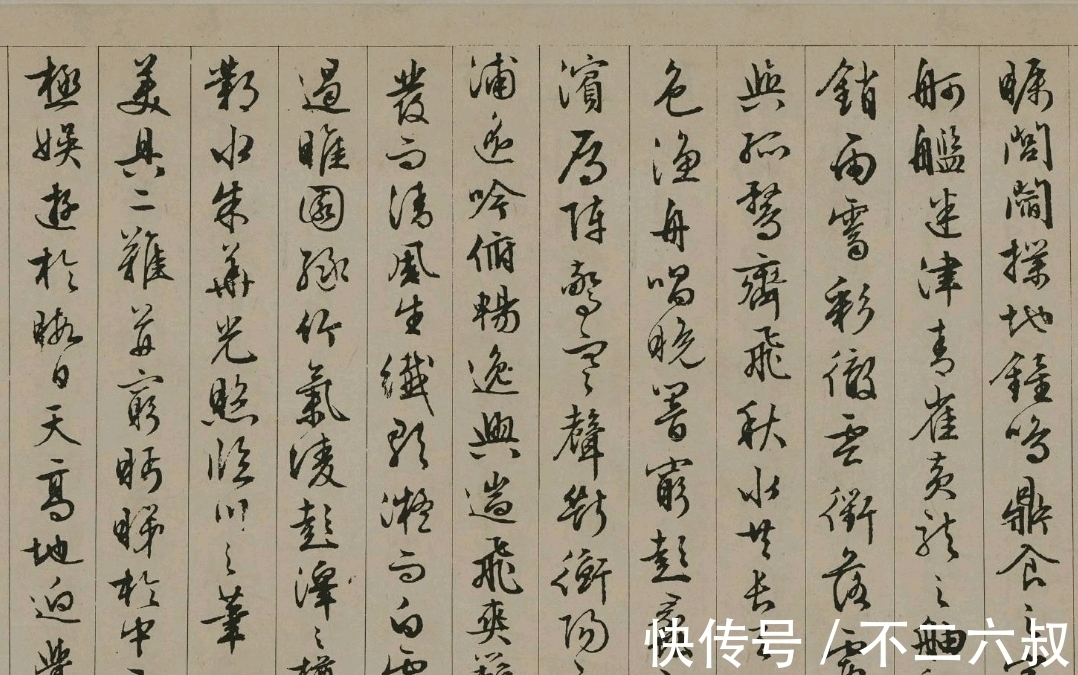 矚閭閻撲地鐘鳴鼎食之
舸艦迷津青雀黄龍之舳
銷雨霽彩徹雲衢落霞
與孤鶩齊飛秋水共長天
色漁舟唱晚響窮彭蠡
濱雁陣驚寒聲斷衡陽之
浦遥吟俯暢逸興遄飛爽籟
發而清風生纖歌凝而白雲
遏睢園緑竹氣凌彭澤之樽
鄴水朱華光照臨川之筆
美具二難并窮眄睇於中
極娱遊於暇日天高地迥覺
快传号 / 不二六叔